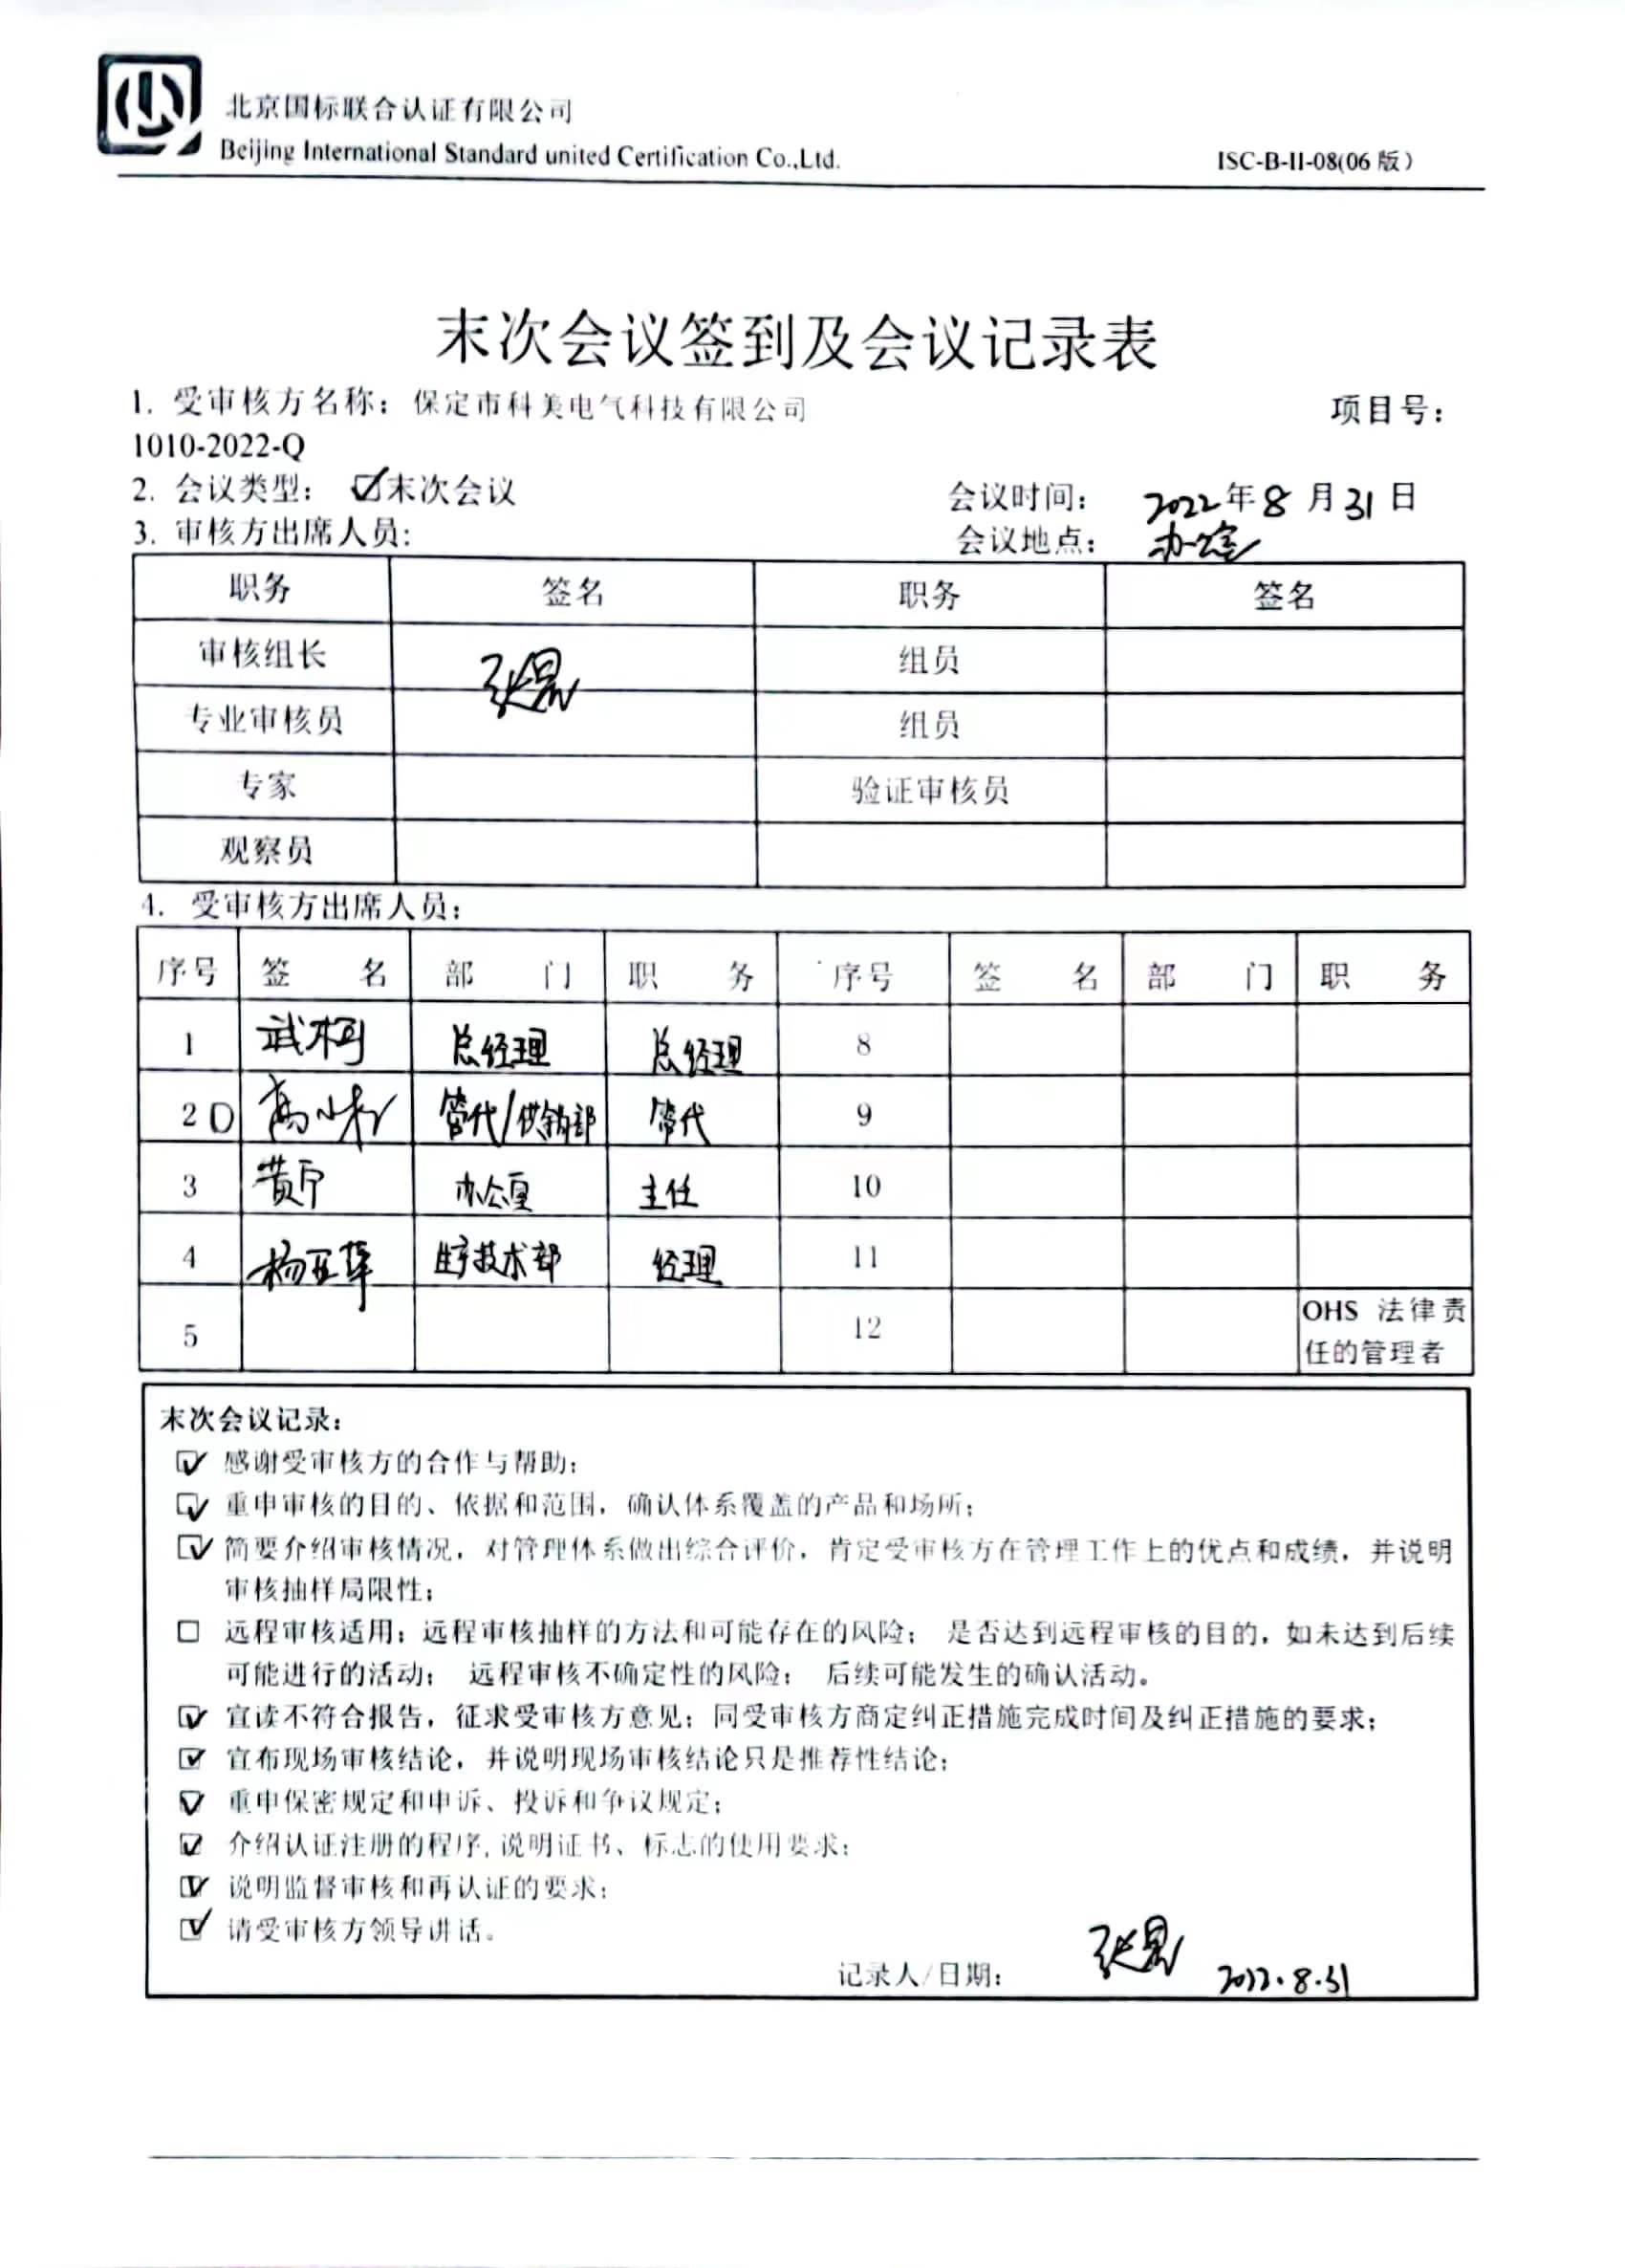 北京国标联合认证有限公司
Beijing International Standard united Certification Co.,Ltd.
ISC-B-II-08(06 版)
末次会议签到及会议记录表
1. 受审核方名称：保定市科美电气科技有限公司 项目号：
1010-2022-Q
2. 会议类型： ☑末次会议 会议时间： 2022年8月31日
3. 审核方出席人员： 会议地点： 办公室
职务 签名 职务 签名
审核组长 张 组员
专业审核员 组员
专家 验证审核员
观察员
4. 受审核方出席人员：
序号 签 名 部 门 职 务 序号 签 名 部 门 职 务
1 武柯 总经理 总经理 8
2 高小 管代/供销部 管代 9
3 黄宁 办公室 主任 10
4 杨亚萍 生产技术部 经理 11
5 12 OHS 法律责
任的管理者
末次会议记录：
☑ 感谢受审核方的合作与帮助；
☑ 重申审核的目的、依据和范围，确认体系覆盖的产品和场所；
☑ 简要介绍审核情况，对管理体系做出综合评价，肯定受审核方在管理工作上的优点和成绩，并说明
审核抽样局限性；
□ 远程审核适用：远程审核抽样的方法和可能存在的风险； 是否达到远程审核的目的，如未达到后续
可能进行的活动； 远程审核不确定性的风险； 后续可能发生的确认活动。
☑ 宣读不符合报告，征求受审核方意见；同受审核方商定纠正措施完成时间及纠正措施的要求；
☑ 宣布现场审核结论，并说明现场审核结论只是推荐性结论；
☑ 重申保密规定和申诉、投诉和争议规定；
☑ 介绍认证注册的程序,说明证书、标志的使用要求；
☑ 说明监督审核和再认证的要求；
☑ 请受审核方领导讲话。
记录人/日期： 张 2022.8.31